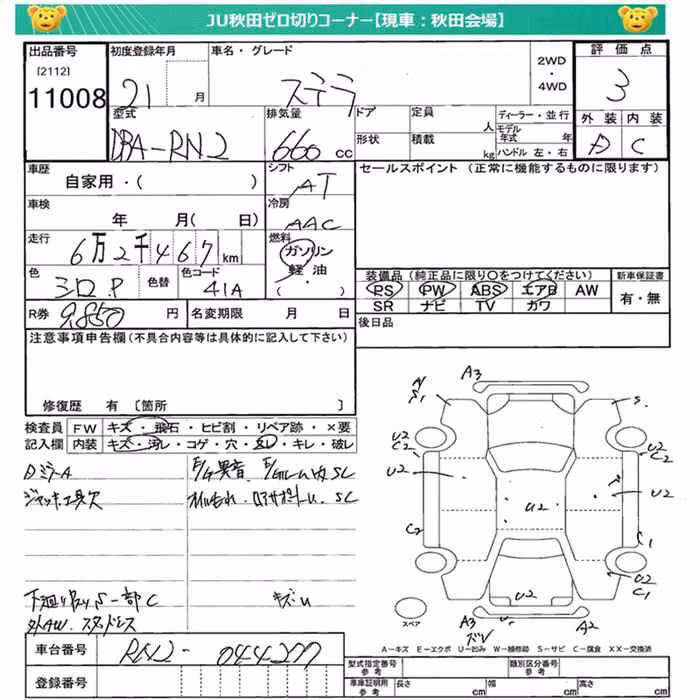 JU秋田ゼロ切りコーナー【現車：秋田会場】
出品番号 初度登録年月 車名・グレード 2WD・4WD 評価点
[2112]
11008 21 月 ステラ 3
型式 排気量 ドア 定員 人 ディーラー・並行 外装 内装
DBA-RN2 660 cc 形状 積載 kg モデル年式 年 ハンドル 左・右 D C
車歴 シフト セールスポイント（正常に機能するものに限ります）
自家用・( ) AT
車検 冷房
年 月( 日) AAC
走行 燃料
6万2千467km ガソリン
色 色替 色コード 軽油 装備品（純正品に限り○をつけてください） 新車保証書
シロP 41A ( ) PS PW ABS エアB AW 有・無
SR ナビ TV ガワ
R券 9,850 円 名変期限 月 日 後日品
注意事項申告欄(不具合内容等は具体的に記入して下さい)
修復歴 有 [箇所 ]
検査員 FW キズ・飛石・ヒビ割・リペア跡・×要
記入欄 内装 キズ・汚レ・コゲ・穴・スレ・キレ・破レ
DミラーA E/g異音.
ジャッキ工具欠
下廻りS一部C キズU
外AW. スタッドレス
A3
S1
S
U2
C2
U2
C2
U2
U2
U2
C2
C1
U2
U2
C1
A3
A2
スペア
A－キズ E－エクボ U－凹み W－補修跡 S－サビ C－腐食 XX－交換済
車台番号 RN2-044277
登録番号
型式指定番号 参考 類別区分番号 参考
車庫証明用 参考 長さ cm 幅 cm 高さ cm